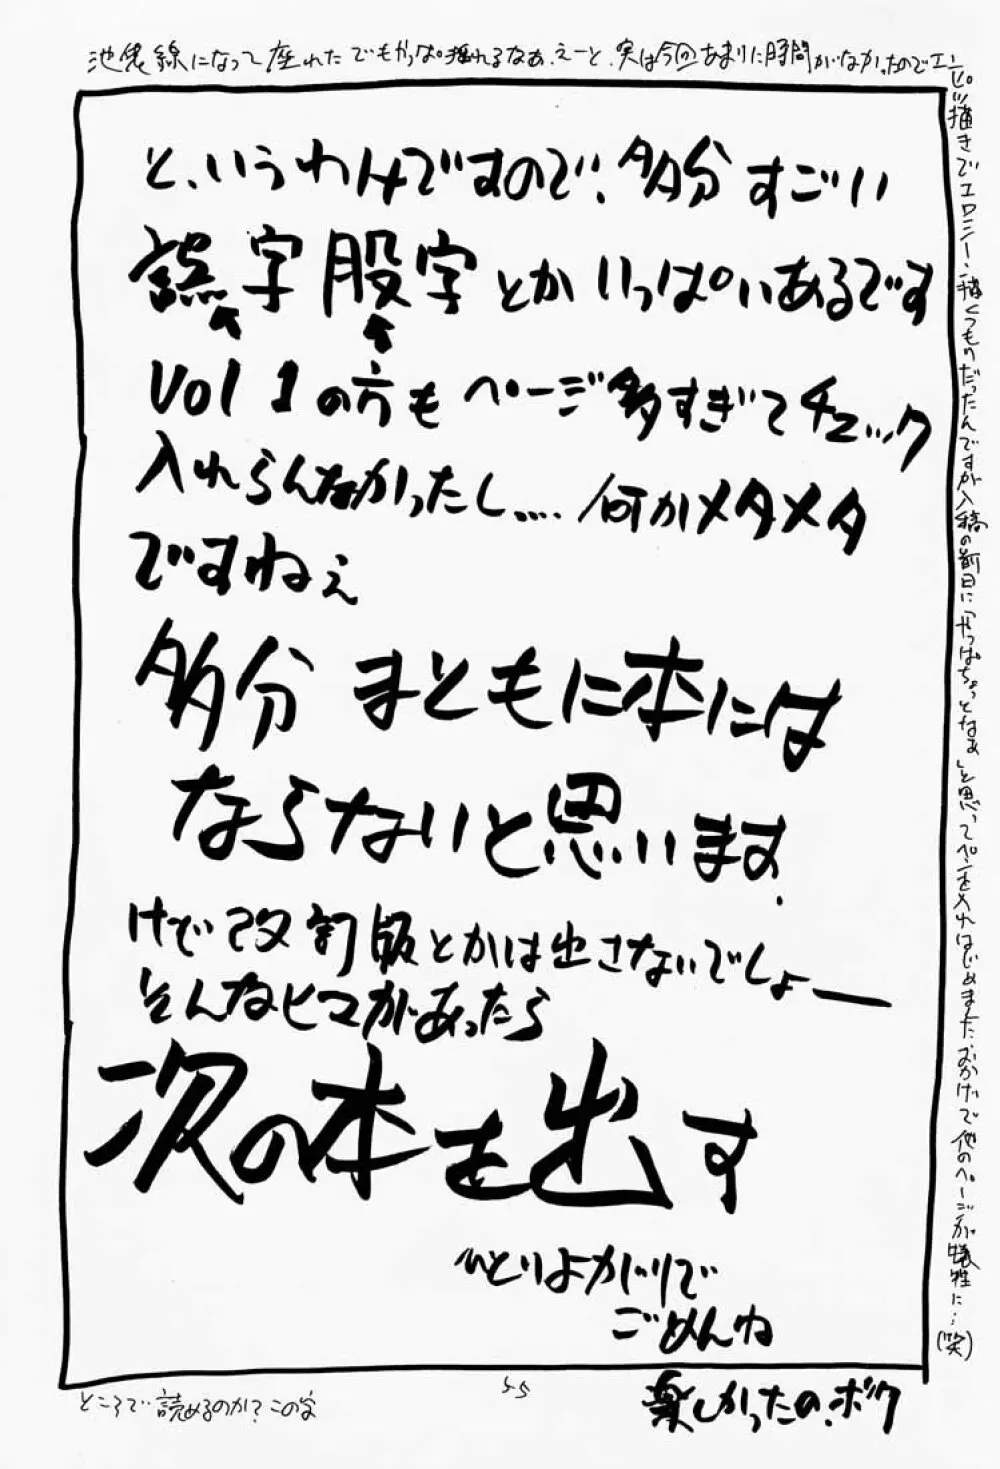 池袋線になって座れたでもやっぱ揺れるなぁ、えーと、実は今回あまりに時間がなかったのでエン
ピツ描きでエロシーン描くつもりだったんですが入稿の前日に「やっぱちょっとなぁ」と思ってペンを入れはじめました おかげで他のページが犠牲に…(笑)
と、いうわけですので、多分すごい
誤字股字とかいっぱいあるです
Vol 1の方もページ多すぎてチェック
入れらんなかったし.... 何かメタメタ
ですねぇ
多分 まともに本には
ならないと思います.
けで改訂版とかは出さないでしょー
そんなヒマがあったら
次の本を出す
ひとりよがりで
ごめんね
楽しかったの.ボク
55
ところで読めるのか?この字